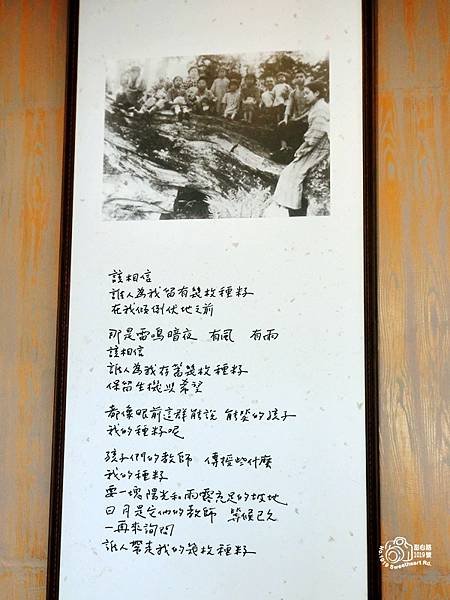 該相信
誰人為我留有幾枚種籽
在我傾倒伏地之前
那是雷鳴暗夜 有風 有雨
該相信
誰人為我存蓄幾枚種籽
保留生機以希望
都像眼前這群能說 能笑的孩子
我的種籽呢
孩子們的教師 傳授些什麼
我的種籽
要一塊陽光和雨露充足的坡地
日月是它們的教師 等候已久
一再來詢問
誰人帶走我的幾枚種籽
甜心路
1019號
No.1019 Sweetheart Rd.